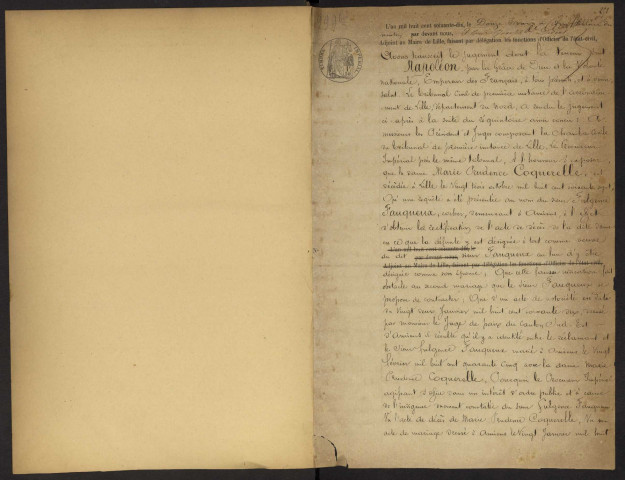 L'an mil huit cent soixante-dix, le
par devant nous,
Adjoint au Maire de Lille, faisant par délégation les fonctions d'Officier de l'état-civil,
transcrit le jugement dont la teneur suit
Napoléon, par la Grâce de Dieu et la Volonté
nationale, Empereur des Français, à tous présents et à venir
salut. Le tribunal civil de première instance de l'arrondisse-
ment de Lille, département du Nord, a rendu le jugement
ci après à la suite du réquisitoire
messieurs les Président et Juges composant la chambre civile
du tribunal de première instance de Lille. Le Procureur
Impérial près le même tribunal, a l'honneur d'exposer
que la dame Marie Prudence Coquerelle est
décédée à Lille le vingt trois octobre mil huit cent soixante sept
Qu'une requête a été présentée au nom du sieur Fulgence
Fauqueux, demeurant à Amiens, à l'effet
d'obtenir la rectification de l'acte de décès de la dite dame
en ce que la défunte y est désignée à tort comme veuve
L'an mil huit cent soixante-dix, le
du dit par devant nous, sieur Fauqueux au lieu d'y être
Adjoint au Maire de Lille, faisant par délégation les fonctions d'Officier de l'état-civil,
désignée comme son épouse; Que cette fausse énonciation fait
obstacle au second mariage que le sieur Fauqueux se
propose de contracter; Que d'un acte de notoriété en date
du vingt deux Janvier mil huit cent soixante dix
par monsieur le Juge de paix du canton Sud Est
d'Amiens il résulte qu'il y a identité entre le réclamant et
le sieur Fulgence Fauqueux marié à Amiens le vingt
février mil huit cent quarante cinq avec la dame Marie
Prudence Coquerelle, Pourquoi le Procureur Impérial
agissant d'office dans un intérêt d'ordre public et à raison
de l'indigence dûment constatée du sieur Fulgence Fauqueux
Vu l'acte de décès de Marie Prudence Coquerelle, Vu son
acte de mariage dressé à Amiens le vingt Janvier mil huit